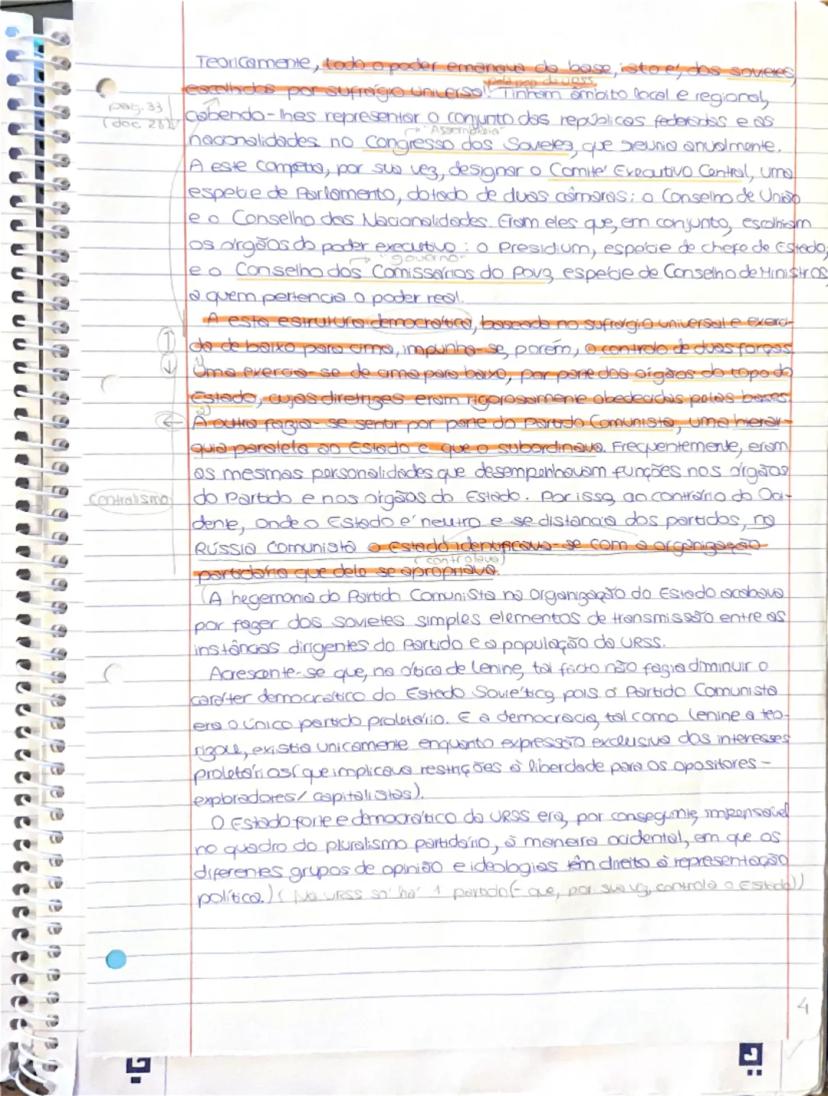 Teoricamente, todo o poder emanava da base, isto é, dos sovietes,
pelo pop. da URSS
escolhidos por sufrágio universal. Tinham âmbito local e regional,
pág. 33
(doc 26)
cabendo-lhes representar o conjunto das repúblicas federadas e as
"Assembleia"
nacionalidades no Congresso dos Sovietes, que reunia anualmente.
A este competia, por sua vez, designar o Comité Executivo Central, uma
espécie de Parlamento, dotado de duas câmaras: o Conselho de União
e o Conselho das Nacionalidades. Eram eles que, em conjunto, escolhiam
os órgãos do poder executivo: o Presidium, espécie de chefe de Estado,
"governo"
e o Conselho dos Comissários do Povo, espécie de Conselho de Ministros,
a quem pertencia o poder real.
A esta estrutura democrática, baseada no sufrágio universal e exerci-
da de baixo para cima, impunha-se, porém, o controlo de duas forças.
1)
Uma exercia-se de cima para baixo, por parte dos órgãos do topo do
Estado, cujas diretrizes eram rigorosamente obedecidas pelas bases.
2)
A outra fazia-se sentir por parte do Partido Comunista, uma hierar-
quia paralela ao Estado e que o subordinava. Frequentemente, eram
as mesmas personalidades que desempenhavam funções nos órgãos
Centralismo
do Partido e nos órgãos do Estado. Por isso, ao contrário do Oci-
dente, onde o Estado é neutro e se distancia dos partidos, na
Rússia Comunista o estado identificava-se com a organização
(controlava)
partidária que dele se apropriava.
(A hegemonia do Partido Comunista na Organização do Estado acabava
por fazer dos sovietes simples elementos de transmissão entre as
instâncias dirigentes do Partido e a população da URSS.
Acrescente-se que, na ótica de Lenine, tal facto não fazia diminuir o
caráter democrático do Estado Soviético, pois o Partido Comunista
era o único partido proletário. E a democracia, tal como Lenine a teo-
rizou, existia unicamente enquanto expressão exclusiva dos interesses
proletários (que implicava restrições à liberdade para os opositores -
exploradores/capitalistas).
O Estado forte e democrático da URSS era, por conseguinte, impensável
no quadro do pluralismo partidário, à maneira ocidental, em que os
diferentes grupos de opinião e ideologias têm direito à representação
política.) (Na URSS só há 1 partido (- que, por sua vez, controla o Estado))
4